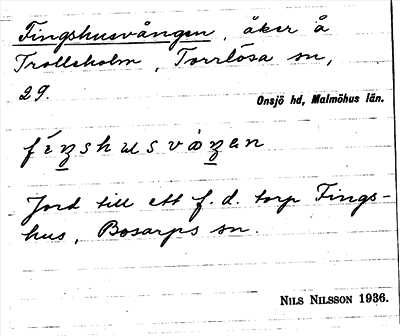 Fingshusvången, åker å
Trolleholm, Torrlösa sn,
29.
Onsjö hd, Malmöhus län.
fíŋshusvåŋen
Jord till ett f.d. torp Fings-
hus, Bosarps sn.
NILS NILSSON 1936.